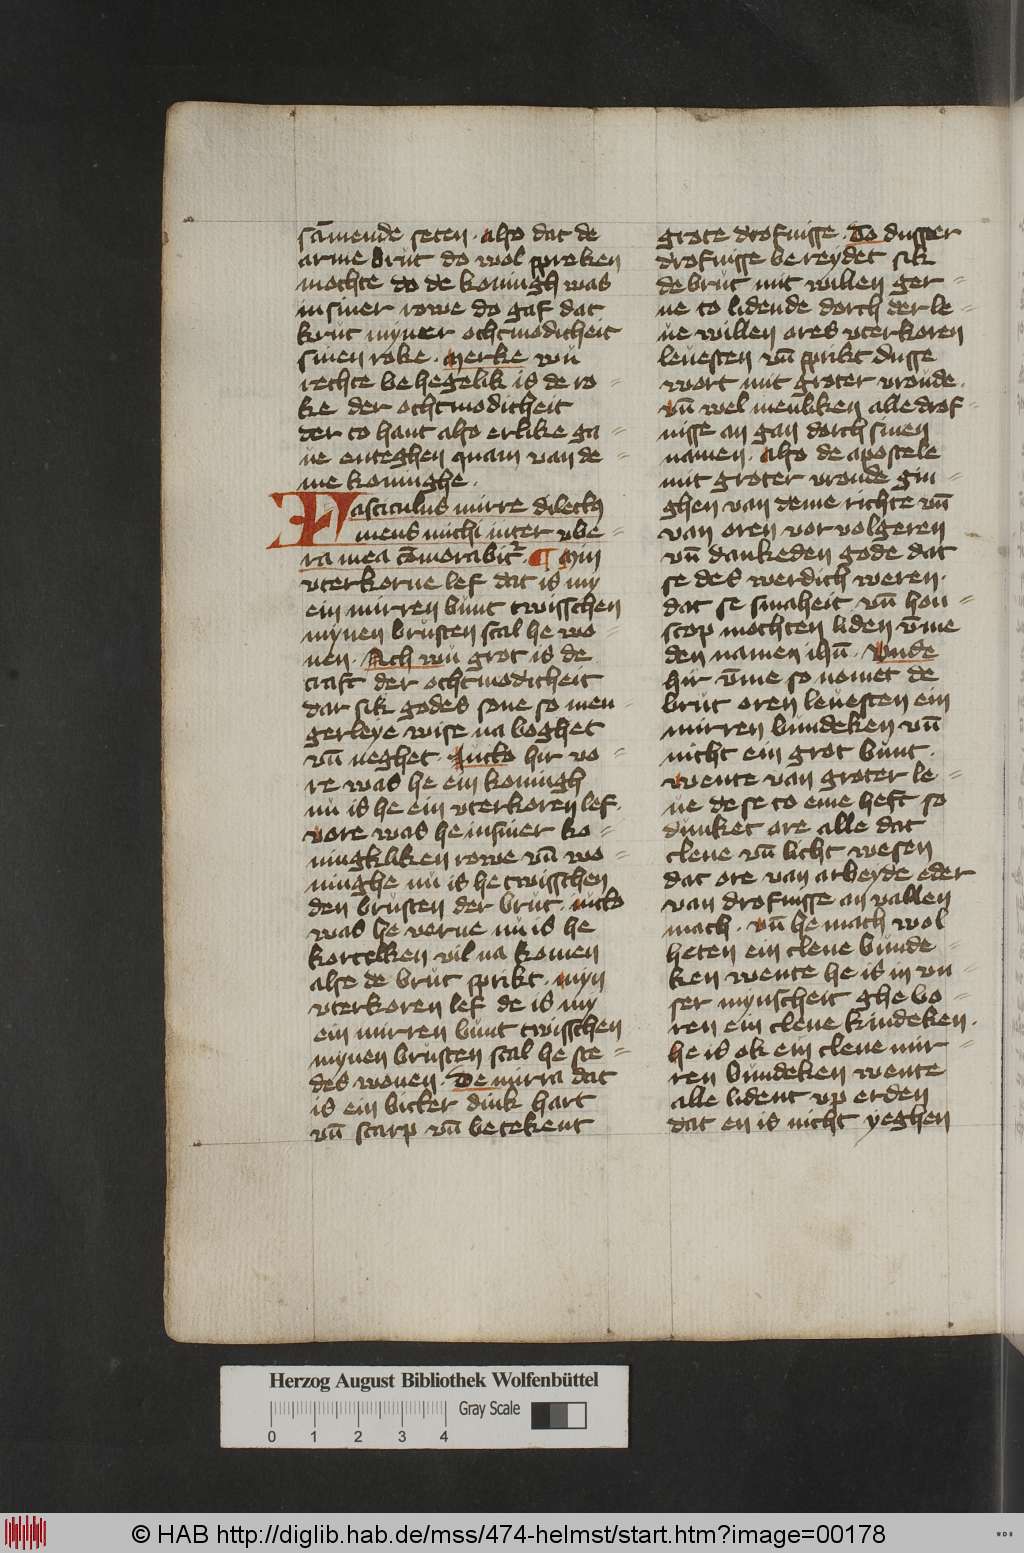 sāmende seten · also dat de
arme brut do wol spreken
mochte do de koningh was
in siner rowe do gaf dat
krut myner othmodicheit
sinen roke · Merke wu
rechte behegelik is de ro=
ke der othmodicheit
der to hant also erlike ga=
ue enteghen quam van de=
me koninghe ·
Fasciculus mirre dilectꝯ
meus michi inter vbe=
ra mea cōmorabitᷣ · ¶ Min
vterkorne lef dat is my
ein mirren bunt twisschen
mynen brusten scal he wo=
nen · Ach wu grot is de
craft der othmodicheit
dar sik godes sone so men=
gerleye wise na boghet
vn̄ neghet · Nicko hir vo=
re was he ein koningh
nu is he ein vterkoren lef ·
vore was he in siner ko=
ningkliken rowe vn̄ wo=
ninghe nu is he twisschen
den brusten der brut ·
was he verne nu is he
kortelken vil na komen
alse de brut sprikt · myn
vterkoren lef de is my
ein mirren bunt twisschen
mynen brusten scal he ste=
des wonen · De mirra dat
is ein bitter dink hart
vn̄ scarp vn̄ betekent
grote drofnisse · To dusser
drofnisse bereydet sik
de brut mit willen ger=
ne to lidende dorch der le=
ue willen ores vterkoren
leuesten vn̄ sprikt dusse
wort mit groter vroude ·
vn̄ wel menliken alle drof=
nisse an gan dorch sinen
namen · also de apostele
mit groter vroude gin=
ghen van deme richte vn̄
van oren vor volgeren
vn̄ dankeden gode dat
se des werdich weren ·
dat se smaheit vn̄ hon=
scop mochten liden v̄me
den namen ihū · Vnde
hir v̄me so nomet de
brut oren leuesten ein
mirren bundeken vn̄
nicht ein grot bunt ·
wente van groter le=
ue de se to eme heft so
dunket ore alle dat
clene vn̄ licht wesen
dat ore van arbeyde eder
van drofnisse an vallen
mach · vn̄ he mach wol
heten ein clene bunde=
ken wente he is in vn=
ser mynscheit ghebo=
ren ein clene kindeken ·
he is ok ein clene mir=
ren bundeken wente
alle lident vp erden
dat en is nicht yeghen
Herzog August Bibliothek Wolfenbüttel
Gray Scale
0 1 2 3 4
© HAB http://diglib.hab.de/mss/474-helmst/start.htm?image=00178
WDB